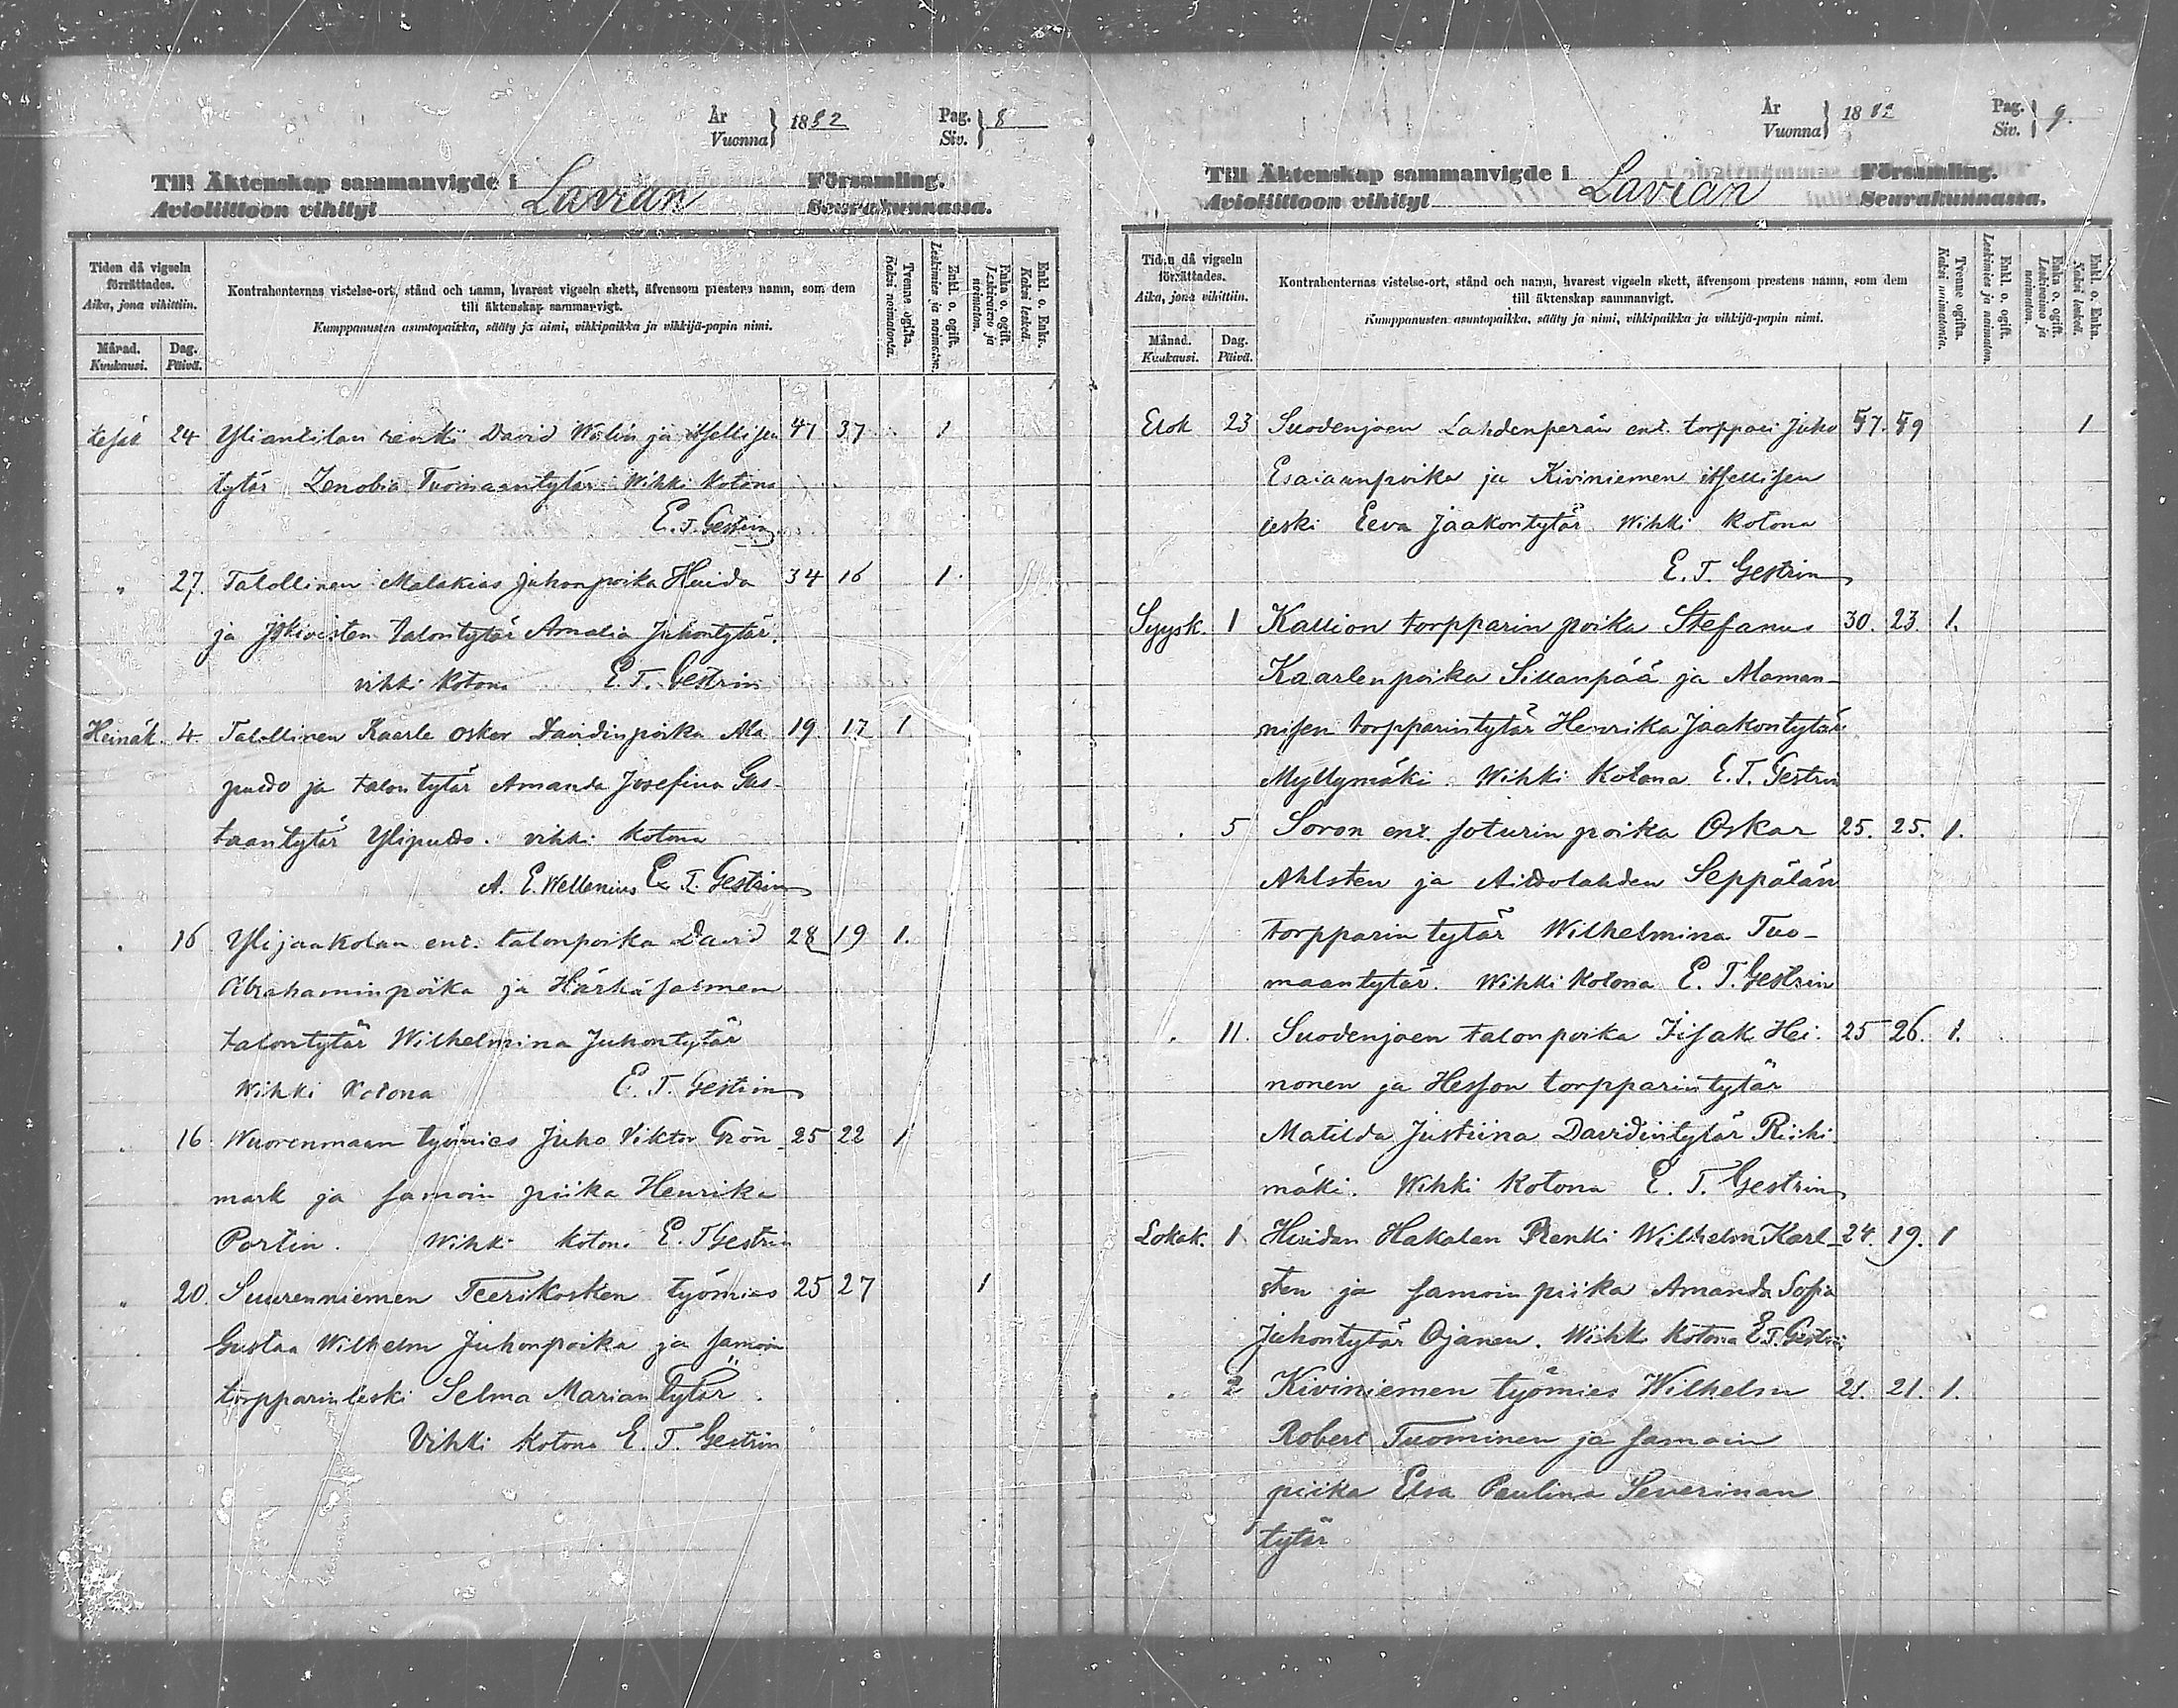 År
Vuonna } 1882
Pag.
Siv. } 8
Till Äktenskap sammanvigde i Lavian Församling.
Avioliittoon vihityt Seurakunnassa.
Tiden då vigseln förrättades.
Aika, jona vihittiin.
Månad.
Kuukausi.
Dag.
Päivä.
Kontrahenternas vistelse-ort, stånd och namn, hvarest vigseln skett, äfvensom prestens namn, som dem
till äktenskap sammanvigt.
Kumppanusten asuntopaikka, sääty ja nimi, vihkipaikka ja vihkijä-papin nimi.
Tvenne ogifta.
Kaksi naimatonta.
Enkl. o. ogift.
Leskimies ja naimaton.
Enka o. ogift.
Leskivaimo ja naimaton.
Enkl. o. Enka.
Kaksi leskeä.
Kesäk 24 Yliantilan renki David Wolin ja itsellisen 41 37 1
tytär Zenobia Tuomaantytär Wihki kotona
E. T. Gestrin
" 27. Talollinen Malakias Juhonpoika Huida 34 16 1.
ja talontytär Amalia Juhontytär.
vihki kotona E. T. Gestrin
Heinäk. 4. Talollinen Kaarle Oskar Davidinpoika Ala 19. 17 1
pudo ja talontytär Amanda Josefina Gus-
taantytär Ylipudo. vihki kotona
A. E. Wellenius E. T. Gestrin
" 16 Ylijaakolan ent. talonpoika David 28 19 1.
Abrahaminpoika ja Härkäsalmen
talontytär Wilhelmina Juhontytär
Wihki kotona E. T. Gestrin
" 16 Wuorenmaan työmies Juho Viktor Grön- 25 22 1
mark ja samoin piika Henrika
Portin. Wihki kotona E. T Gestrin
" 20. Suurenniemen Teerikosken työmies 25 27 1
Gustaa Wilhelm Juhonpoika ja samoin
torpparinleski Selma Mariantytär.
Vihki kotona E. T. Gestrin
År
Vuonna } 1882
Pag.
Siv. } 9.
Till Äktenskap sammanvigde i Lavian Församling.
Avioliittoon vihityt Seurakunnassa.
Tiden då vigseln förrättades.
Aika, jona vihittiin.
Månad.
Kuukausi.
Dag.
Päivä.
Kontrahenternas vistelse-ort, stånd och namn, hvarest vigseln skett, äfvensom prestens namn, som dem
till äktenskap sammanvigt.
Kumppanusten asuntopaikka, sääty ja nimi, vihkipaikka ja vihkijä-papin nimi.
Tvenne ogifta.
Kaksi naimatonta.
Enkl. o. ogift.
Leskimies ja naimaton.
Enka o. ogift.
Leskivaimo ja naimaton.
Enkl. o. Enka.
Kaksi leskeä.
Elok 23 Suodenjoen Lahdenperän ent. torppari Juho 57. 59 1
Esaiaanpoika ja Kiviniemen itsellisen
leski Eeva Jaakontytär Wihki kotona
E. T. Gestrin
Syysk. 1 Kallion torpparin poika Stefanus 30. 23. 1.
Kaarlenpoika Sillanpää ja Maman-
nisen torpparintytär Henrika Jaakontytär
Myllymäki. Wihki kotona E. T. Gestrin
" 5 Soron ent. soturin poika Oskar 25. 25. 1.
Ahlsten ja Aittolahden Seppälän
torpparin tytär Wilhelmina Tuo-
maantytär. Wihki kotona E. T. Gestrin
" 11. Suodenjoen talonpoika Iisak Hei- 25 26. 1.
nonen ja Hesson torpparintytär
Matilda Justiina Davidintytär Riihi
mäki. Wihki kotona E. T. Gestrin
Lokak. 1 Huidan Hakalan Renki Wilhelm Karl- 24. 19. 1
sten ja samoin piika Amanda Sofia
Juhontytär Ojanen. Wihki kotona E. T. Gestrin
" 2 Kiviniemen työmies Wilhelm 21. 21. 1.
Robert Tuominen ja samoin
piika Elsa Paulina Severinan
tytär